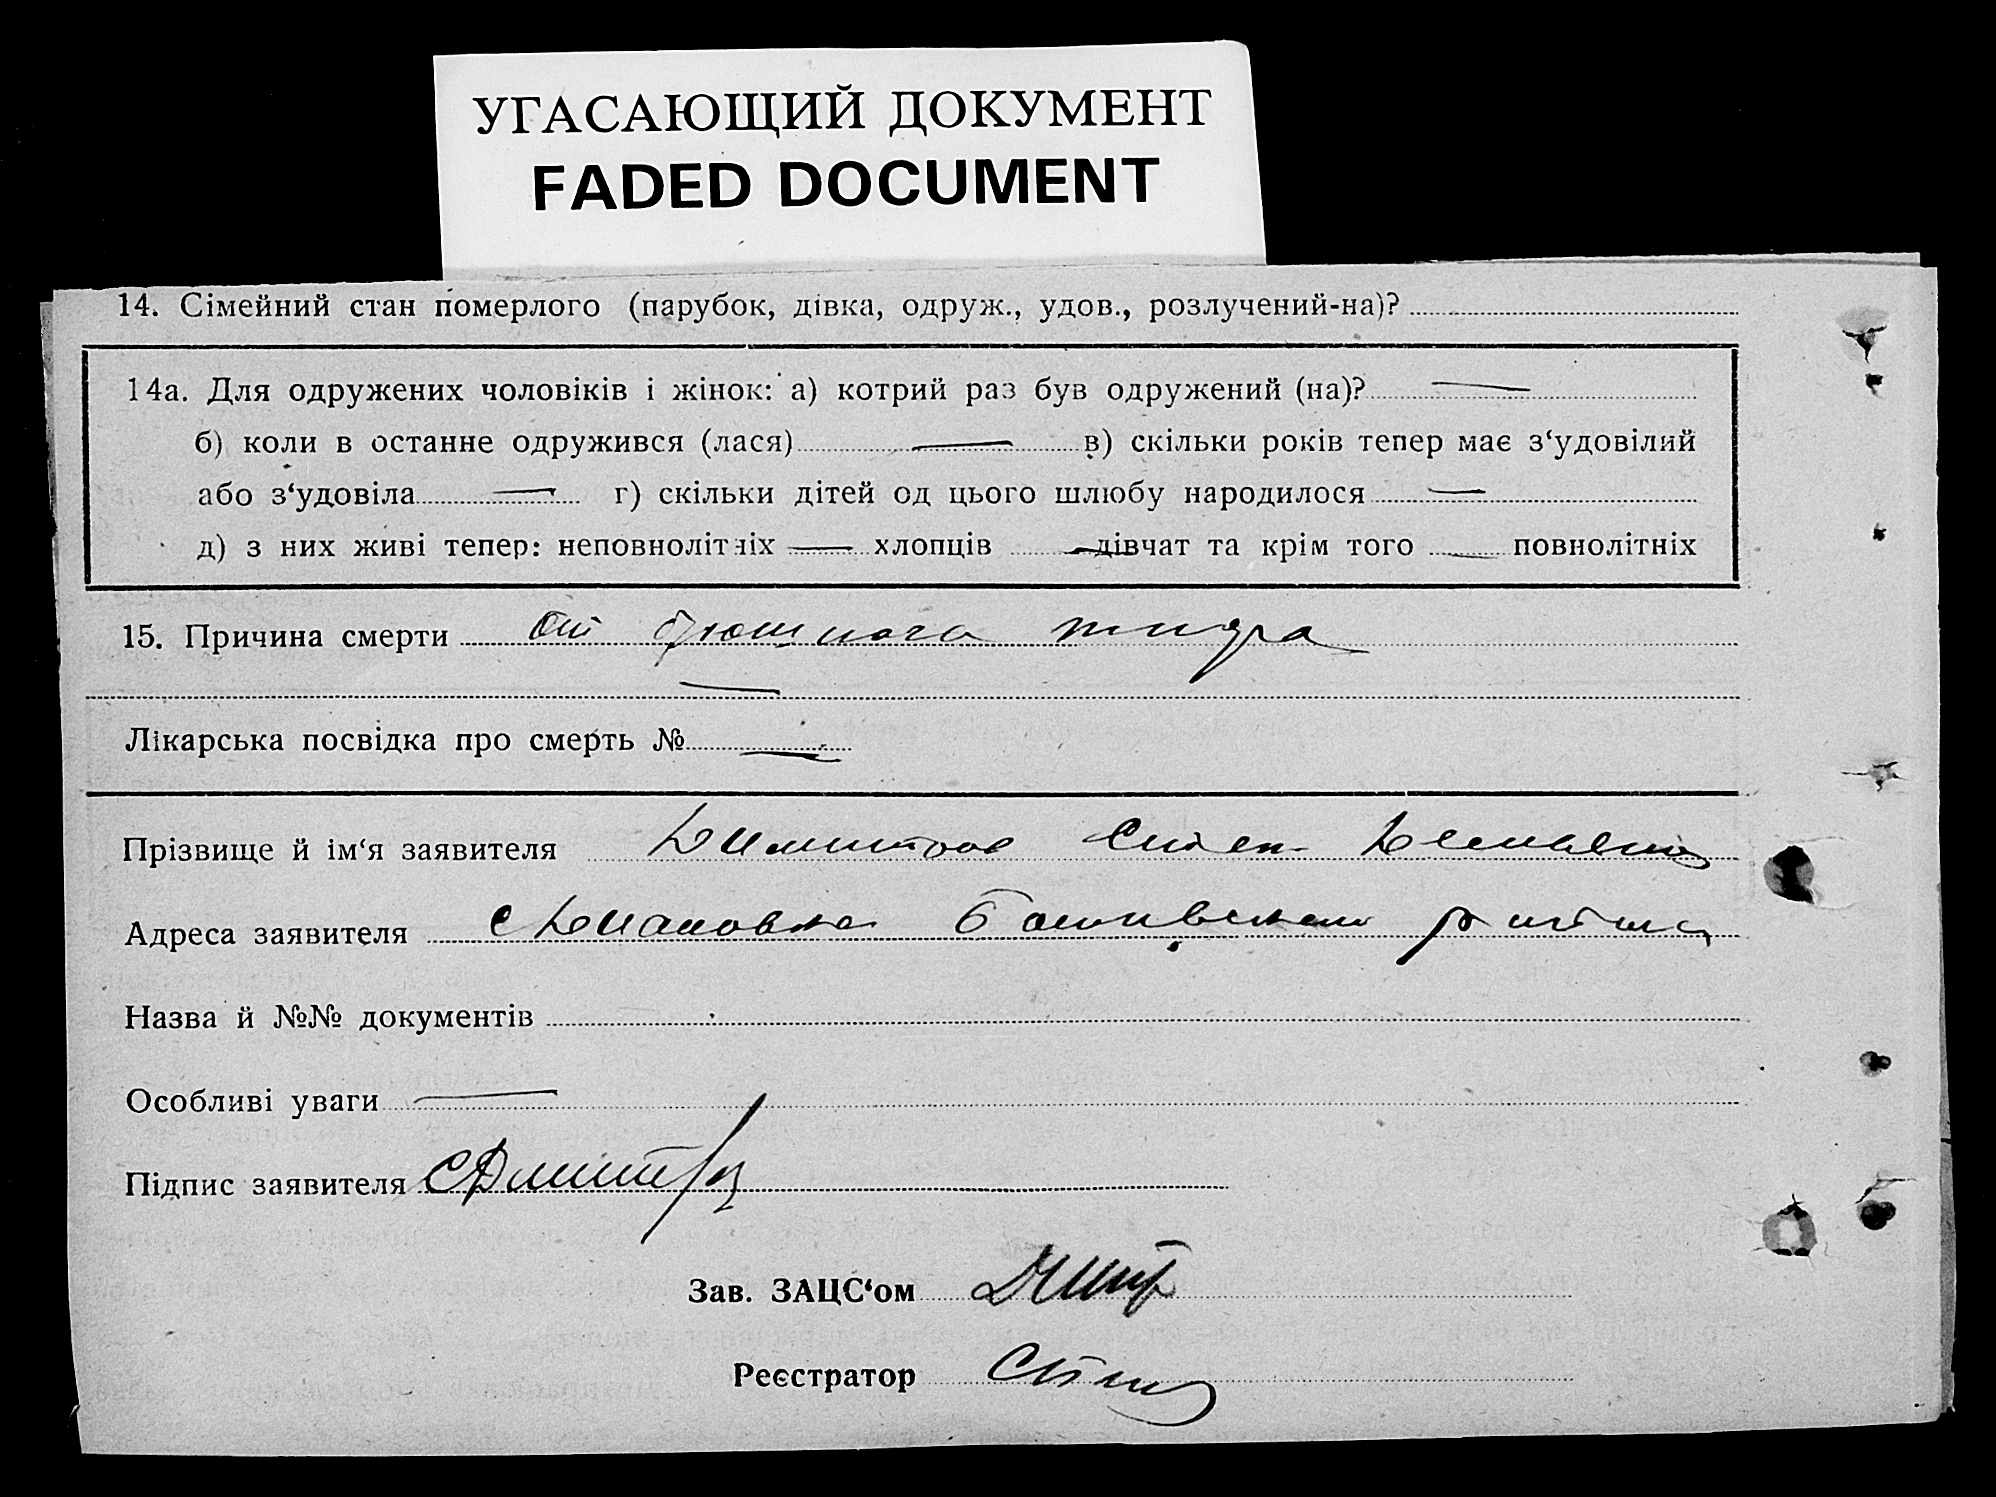 УГАСАЮЩИЙ ДОКУМЕНТ
FADED DOCUMENT
14. Сімейний стан померлого (парубок, дівка, одруж., удов., розлучений-на)?
14а. Для одружених чоловіків і жінок: а) котрий раз був одружений (на)? —
б) коли в останне одружився (лася) — в) скільки років тепер має з‘удовілий
або з‘удовіла — г) скільки дітей од цього шлюбу народилося —
д) з них живі тепер: неповнолітніх — хлопців — дівчат та крім того — повнолітніх
15. Причина смерти от брюшного тифа
—
Лікарська посвідка про смерть № —
Прізвище й ім‘я заявителя Димитров
Адреса заявителя с района
Назва й №№ документів
Особливі уваги —
Підпис заявителя
Зав. ЗАЦС‘ом
Реєстратор